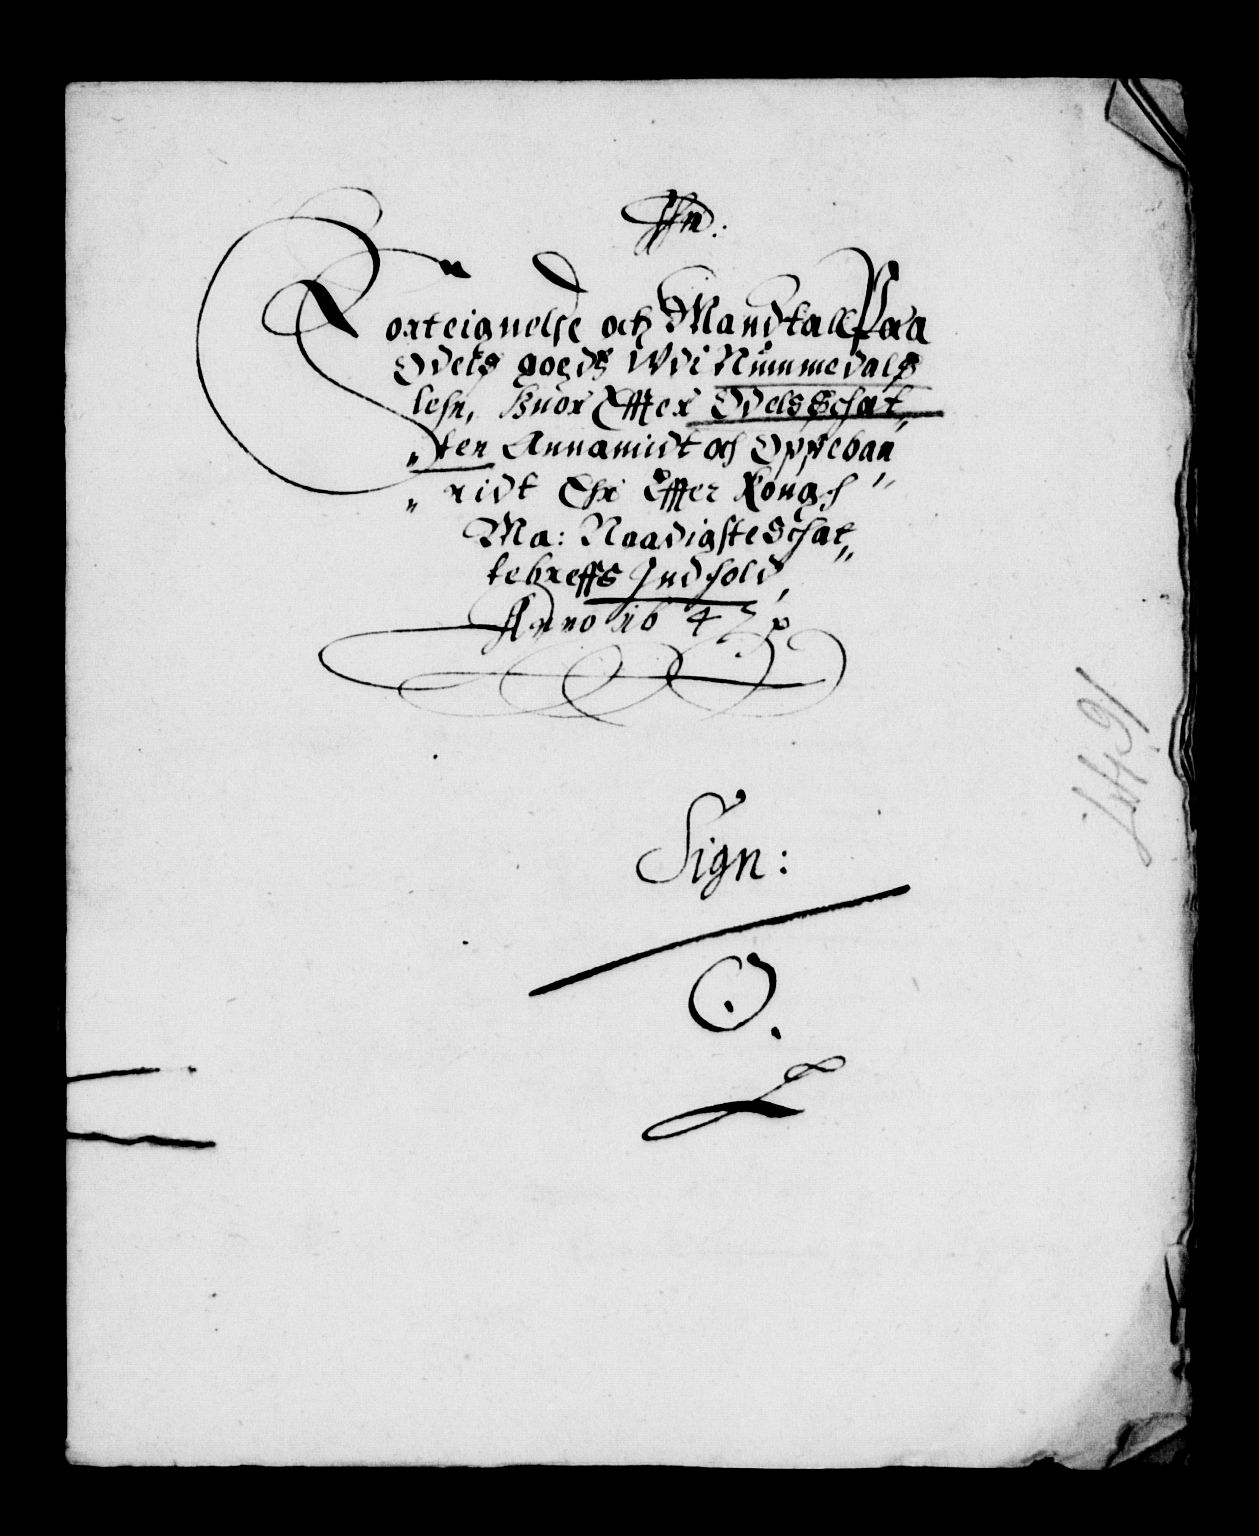 Forteignelse och Mandtall Paa
Odels goeds Udi Nummedals
lehn, Huor Effter Odels Schat„
„ten Annamidt och Oppebaa„
„ridt Ehr Effter Kongh
Ma: Naadigste Schat„
tebreffs Indhold,
Anno 1647 p
Sign:
O.
L